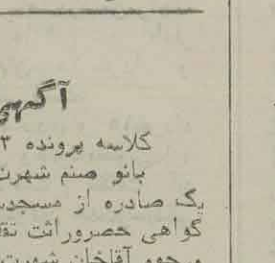 آگهی
کلاسه پرونده ۳
بانو صنم شهرت
یک صادره از مسجد
گواهی حصروراثت تقا
مرحوم آقاخان شهرت